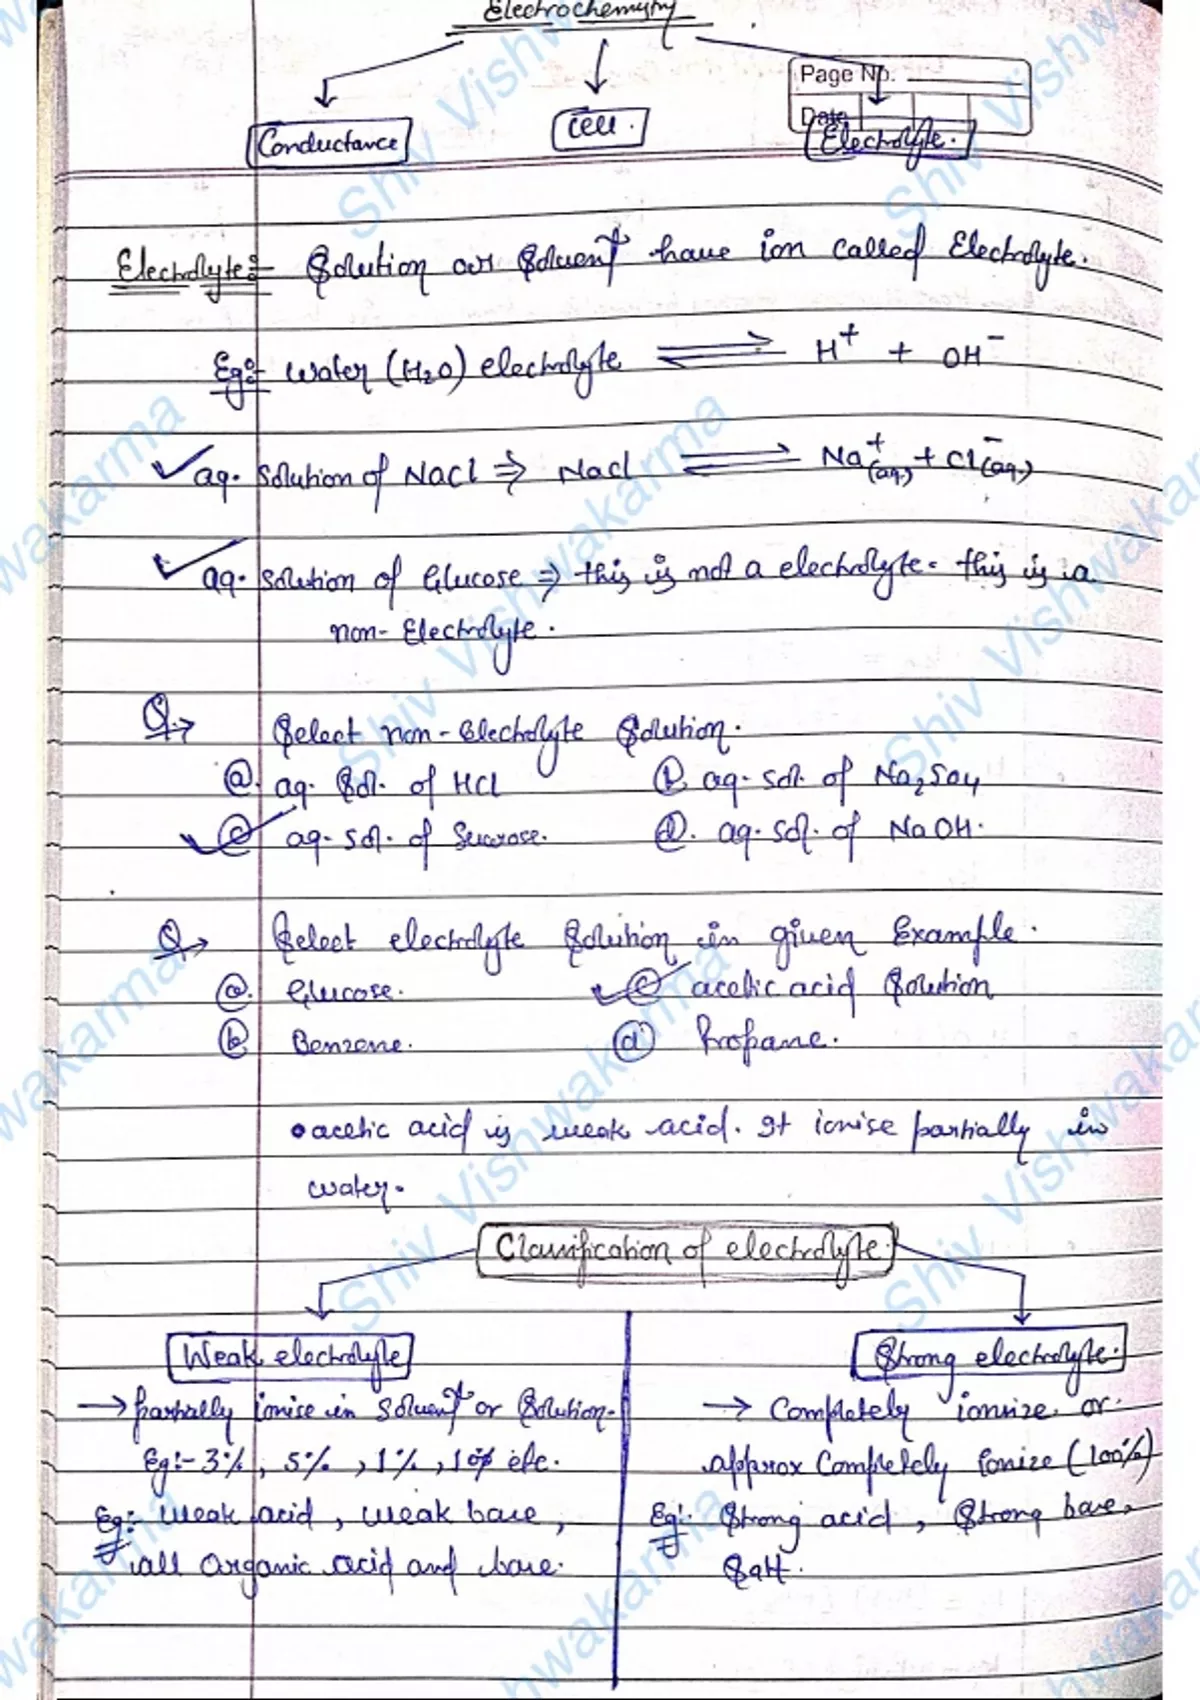 Electrochemistry
Page No.
Date
Conductance
Cell.
Electrolyte.
Electrolyte:- Solution or Solvent have ion called Electrolyte.
Eg:- water (H₂O) electrolyte ⇌ H⁺ + OH⁻
aq. solution of NaCl ⇒ NaCl ⇌ Na⁺(aq.) + Cl⁻(aq.)
aq. solution of Glucose ⇒ this is not a electrolyte. this is a
non-Electrolyte.
Q→ Select non-Electrolyte Solution.
(a). aq. Sol. of HCl (b) aq. sol. of Na₂SO₄
(c) aq. sol. of Sucrose. (d). aq. sol. of NaOH.
Q→ Select electrolyte Solution in given Example.
(a). Glucose. (c) acetic acid Solution
(b) Benzene. (d) Propane.
• acetic acid is weak acid. It ionise partially in
water.
Classification of electrolyte.
Weak electrolyte
Strong electrolyte.
→ partially ionise in solvent or solution.
Eg:- 3%, 5%, 1%, 10% etc.
Eg:- weak acid, weak base,
all organic acid and base.
→ Completely ionize or
approx Completely ionize (100%)
Eg:- Strong acid, Strong base,
Salt.
Shiv Vishwakarma